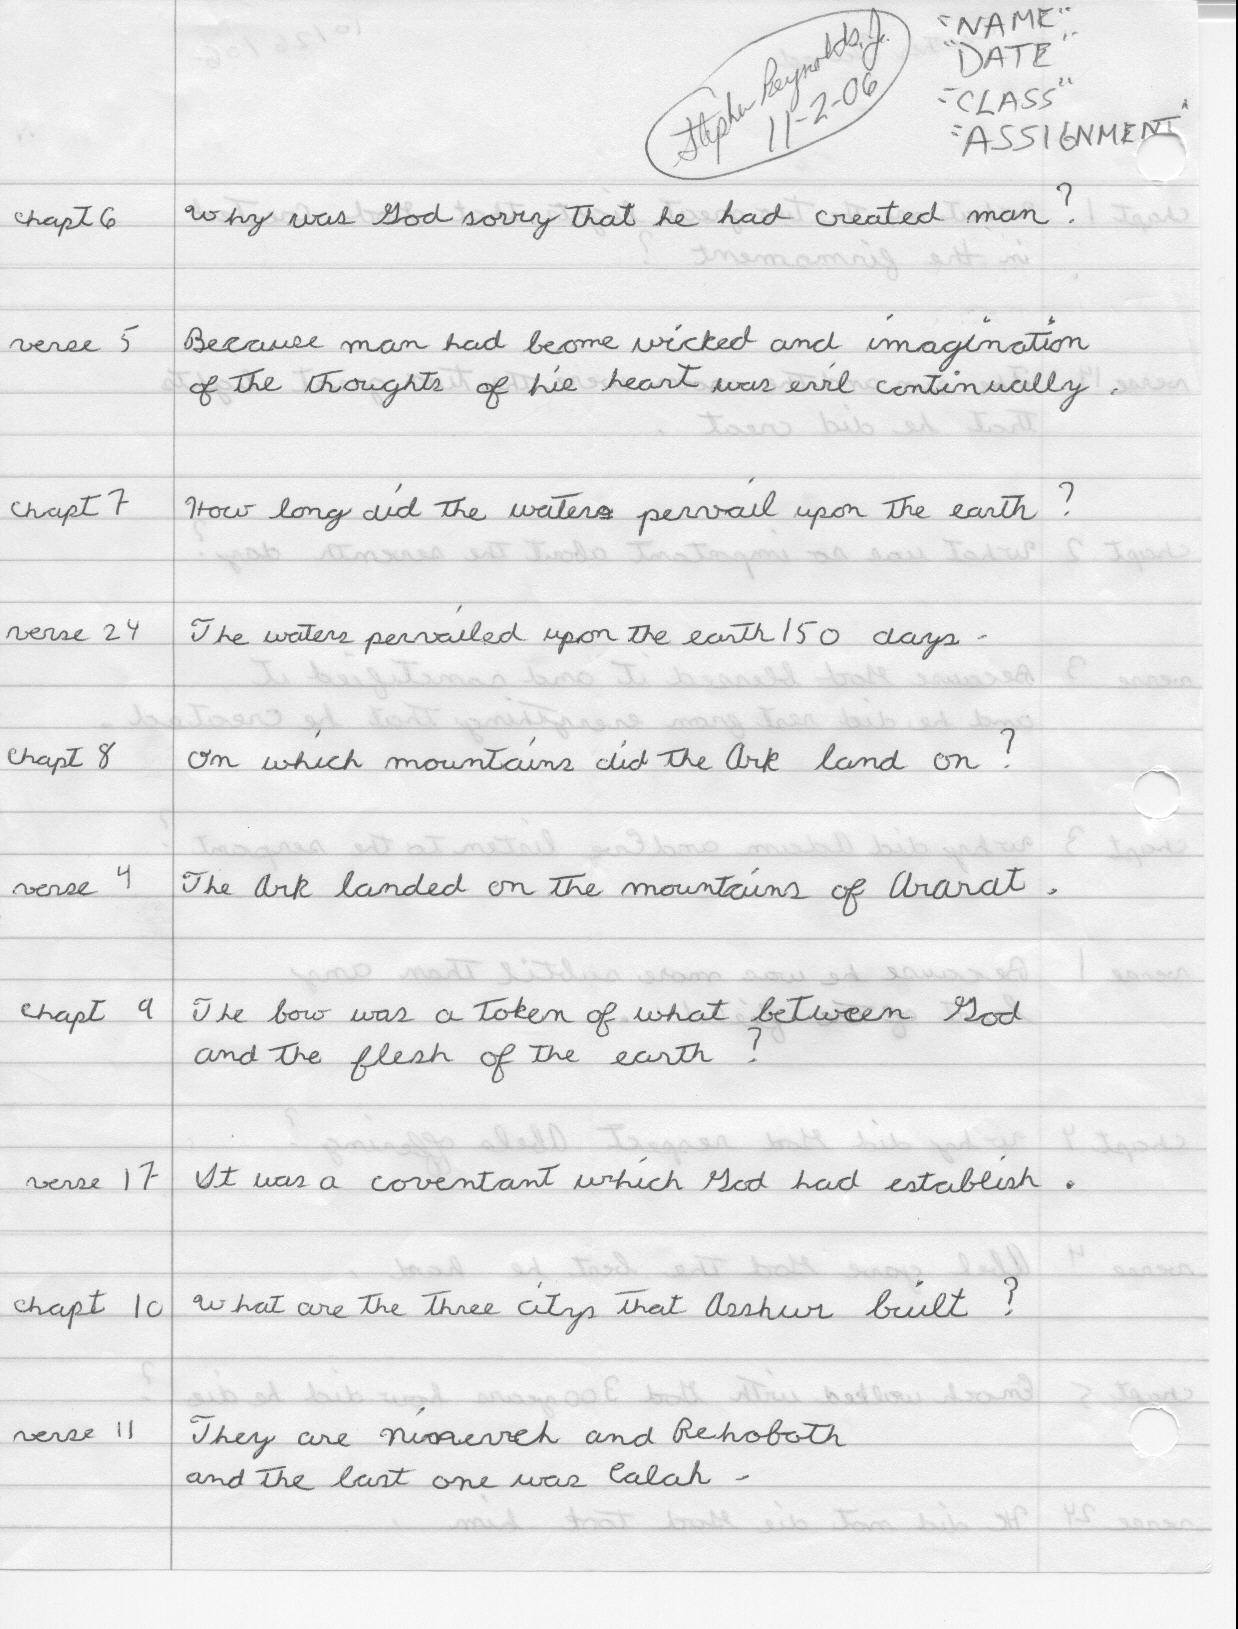 Stephen Reynolds, Jr.
11-2-06
"NAME"
"DATE"
"CLASS"
"ASSIGNMENT"
Chapt 6 Why was God sorry that he had created man?
verse 5 Because man had beome wicked and imagination
of the thoughts of hie heart was evil continually.
Chapt 7 How long did the waters pervail upon the earth?
verse 24 The waters pervailed upon the earth 150 days-
Chapt 8 On which mountains did the Ark land on?
verse 4 The Ark landed on the mountains of Ararat.
Chapt 9 The bow was a token of what between God
and the flesh of the earth?
verse 17 It was a coventant which God had establish.
Chapt 10 What are the three citys that Asshur built?
verse 11 They are and Rehoboth
and the last one was Calah-